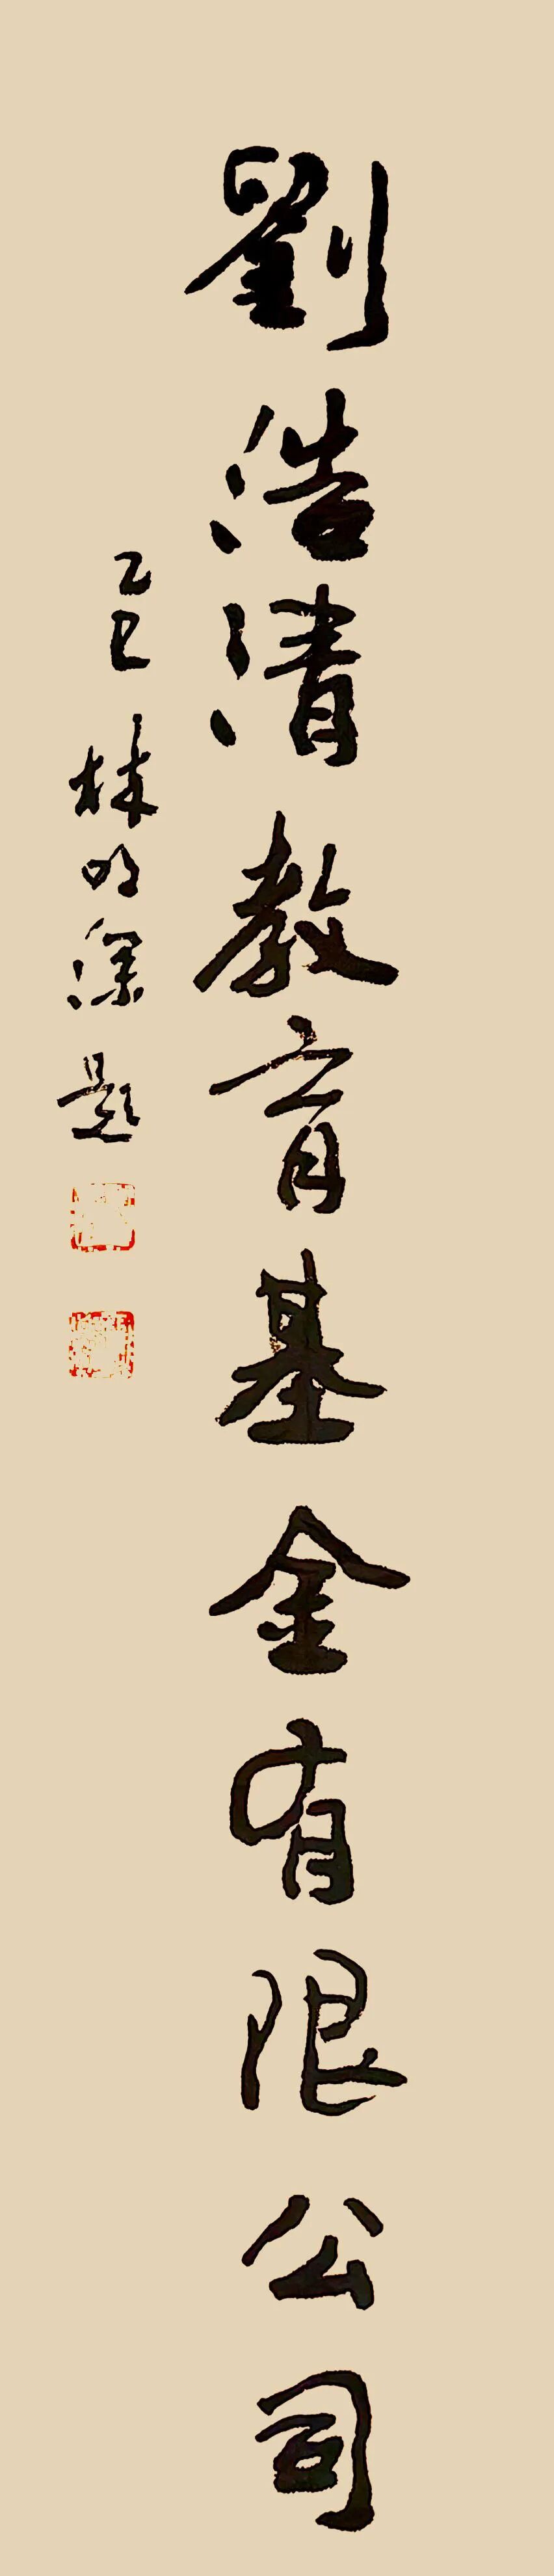 劉浩清教育基金有限公司
乙巳 林明深題